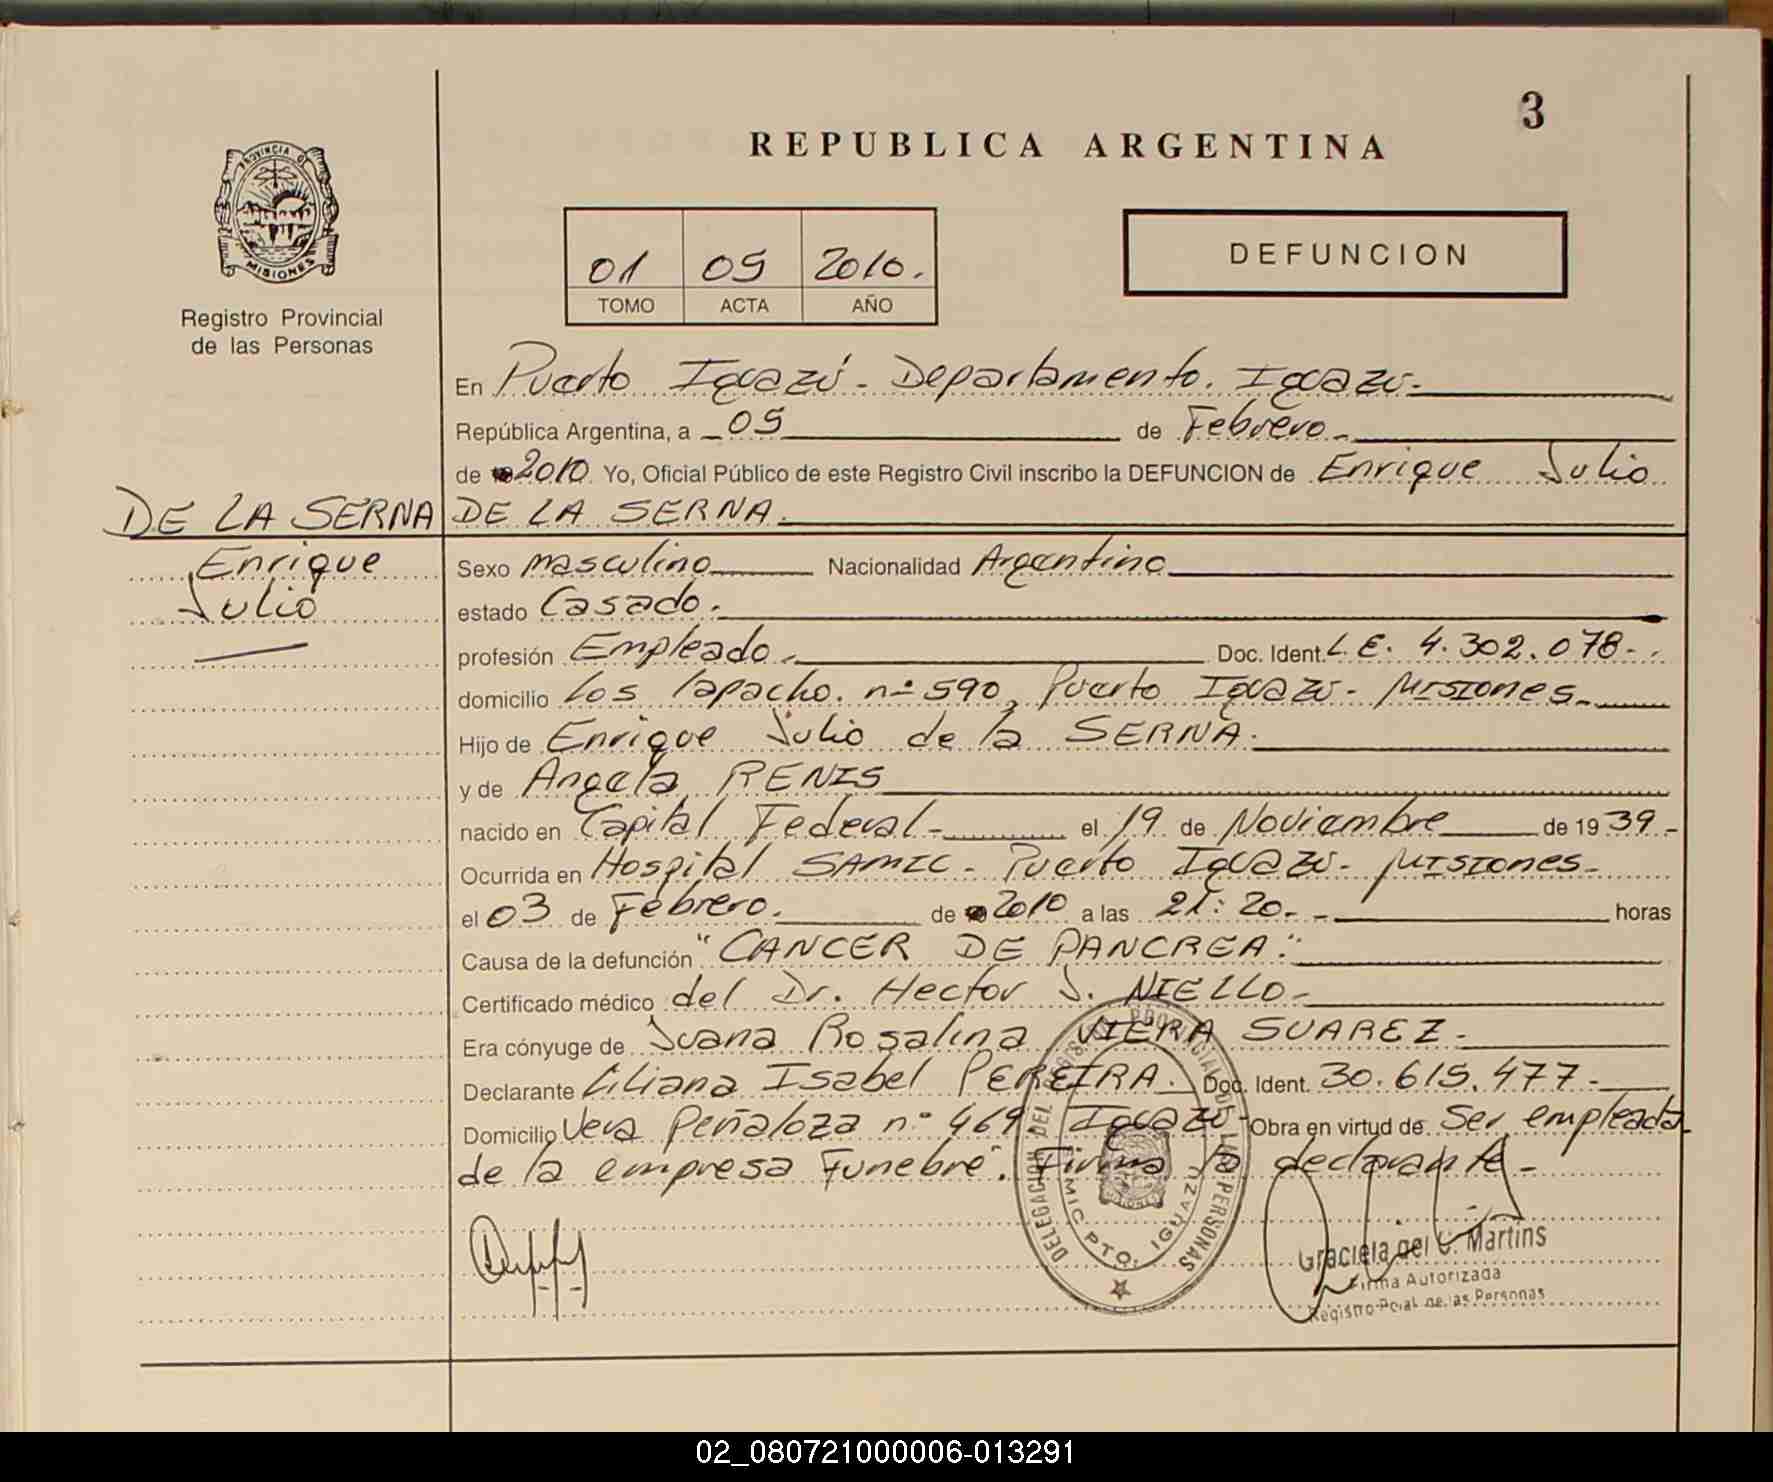 3
REPUBLICA ARGENTINA
PROVINCIA DE
MISIONES
Registro Provincial
de las Personas
01 05 2010.
TOMO ACTA AÑO
DEFUNCION
En Puerto Iguazú - Departamento. Iguazú.
República Argentina, a 05 de Febrero
de 2010 Yo, Oficial Público de este Registro Civil inscribo la DEFUNCION de Enrique Julio
DE LA SERNA DE LA SERNA.
Enrique
Julio
Sexo masculino Nacionalidad Argentino
estado Casado.
profesión Empleado. Doc. Ident. L.E. 4.302.078.
domicilio Los lapacho. nº 590, Puerto Iguazú - Misiones
Hijo de Enrique Julio de la SERNA.
y de Angela RENIS
nacido en Capital Federal el 19 de Noviembre de 19 39
Ocurrida en Hospital SAMIC - Puerto Iguazú - Misiones
el 03 de Febrero. de 2010 a las 21:20 horas
Causa de la defunción "CANCER DE PANCREA."
Certificado médico del Dr. Hector J. NIELLO
Era cónyuge de Juana Rosalina VIERA SUAREZ.
Declarante Liliana Isabel PEREIRA. Doc. Ident. 30.615.477
Domicilio Vera Peñaloza nº 469 Iguazú Obra en virtud de Ser empleada
de la empresa Funebre. Firma la declarante
DELEGACION DEL REGISTRO PROVINCIAL DE LAS PERSONAS
PTO. IGUAZU
Graciela del C. Martins
Firma Autorizada
Registro Pcial. de las Personas
02_080721000006-013291